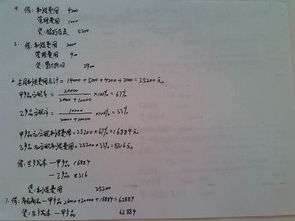 4. 借: 制造费用 4200
管理费用 1000
贷: 5200
5. 借: 制造费用 2000
管理费用 900
贷: 2900
6. 制造费用合计 = 14000 + 5000 + 4200 + 2000 = 25200元
甲产品分配率 = 20000 / 20000 + 10000 × 100% = 67%
乙产品分配率 = 10000 / 20000 + 10000 × 100% = 33%
甲产品分配制造费用 = 25200 × 67% = 16884元
乙产品分配制造费用 = 25200 × 33% = 8316元
借: 生产成本 — 甲产品 16884
— 乙产品 8316
贷: 制造费用 25200
7. 借: 库存商品 — 甲产品 26000 + 20000 + 16884 = 62884
贷: 生产成本 — 甲产品 62884